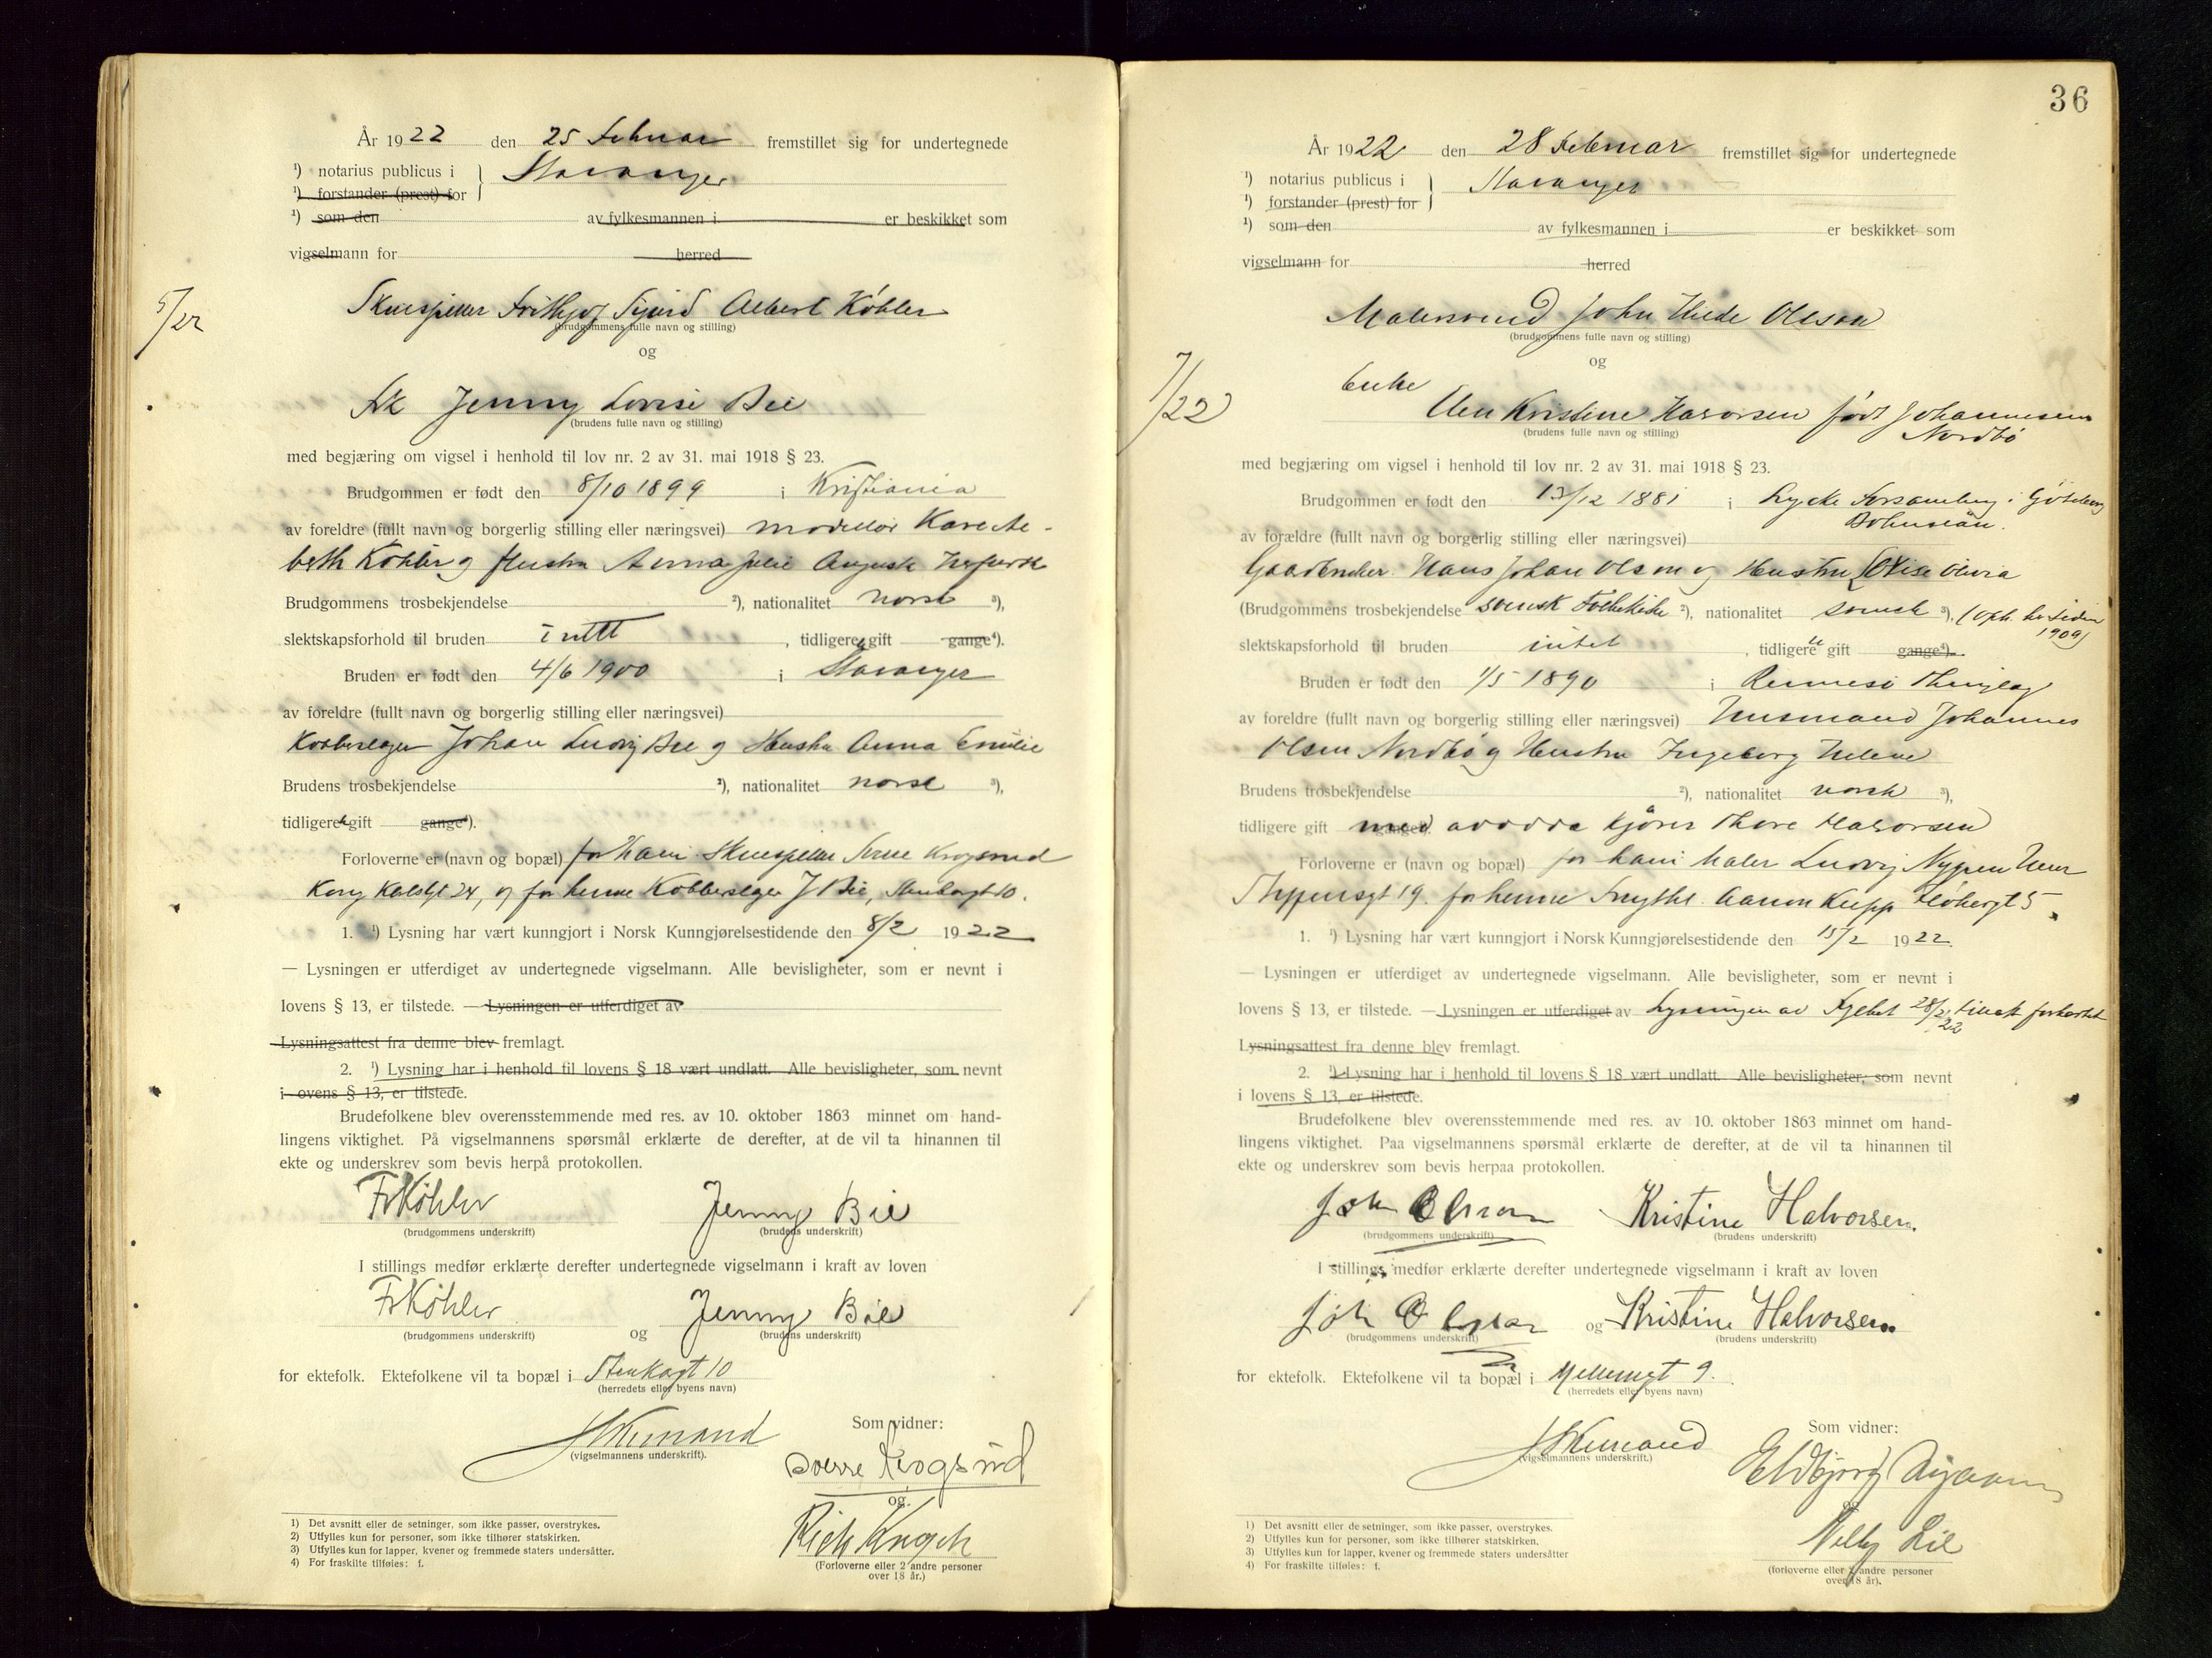 År 1922 den 25 Februar fremstillet sig for undertegnede
¹) notarius publicus i } Stavanger
¹) forstander (prest) for
¹) som den av fylkesmannen i er beskikket som
vigselmann for herred
5/22
Skuespiller Frithjof Sigurd Albert Köhler
(brudgommens fulle navn og stilling)
og
Frk Jenny Lovise Bie
(brudens fulle navn og stilling)
med begjæring om vigsel i henhold til lov nr. 2 av 31. mai 1918 § 23.
Brudgommen er født den 8/10 1899 i Kristiania
av foreldre (fullt navn og borgerlig stilling eller næringsvei) modellør
Köhler og Hustru Anna Julie Auguste
Brudgommens trosbekjendelse ²), nationalitet norsk ³),
slektskapsforhold til bruden intet, tidligere gift gange⁴).
Bruden er født den 4/6 1900 i Stavanger
av foreldre (fullt navn og borgerlig stilling eller næringsvei)
Kobberslager Johan Ludvig Bie og Hustru Anna Emilie
Brudens trosbekjendelse ²), nationalitet norsk ³),
tidligere gift gange⁴).
Forloverne er (navn og bopæl) for ham Skuespiller Sverre Krogsrud
Kong Karlsgt 24, og for henne Kobberslager J Bie, Stenkargt 10.
1. ¹) Lysning har vært kunngjort i Norsk Kunngjørelsestidende den 8/2 1922
— Lysningen er utferdiget av undertegnede vigselmann. Alle bevisligheter, som er nevnt i
lovens § 13, er tilstede. — Lysningen er utferdiget av
Lysningsattest fra denne blev fremlagt.
2. ¹) Lysning har i henhold til lovens § 18 vært undlatt. Alle bevisligheter, som nevnt
i ovens § 13, er tilstede.
Brudefolkene blev overensstemmende med res. av 10. oktober 1863 minnet om hand-
lingens viktighet. På vigselmannens spørsmål erklærte de derefter, at de vil ta hinannen til
ekte og underskrev som bevis herpå protokollen.
Fr Köhler Jenny Bie
(brudgommens underskrift) (brudens underskrift)
I stillings medfør erklærte derefter undertegnede vigselmann i kraft av loven
Fr Köhler og Jenny Bie
(brudgommens underskrift) (brudens underskrift)
for ektefolk. Ektefolkene vil ta bopæl i Stenkagt 10
(herredets eller byens navn)
Som vidner:
(vigselmannens underskrift).
Sverre Krogsrud
og
Rich
(Forloverne eller 2 andre personer
over 18 år.)
1) Det avsnitt eller de setninger, som ikke passer, overstrykes.
2) Utfylles kun for personer, som ikke tilhører statskirken.
3) Utfylles kun for lapper, kvener og fremmede staters undersåtter.
4) For fraskilte tilføies: f.
36
År 1922 den 28 Februar fremstillet sig for undertegnede
¹) notarius publicus i } Stavanger
¹) forstander (prest) for
¹) som den av fylkesmannen i er beskikket som
vigselmann for herred
7/22
Malersvend John Hilde Olsson
(brudgommens fulle navn og stilling)
og
Enke
Elen Kristine Halvorsen født Johannesen
Nordbö
(brudens fulle navn og stilling)
med begjæring om vigsel i henhold til lov nr. 2 av 31. mai 1918 § 23.
Brudgommen er født den 13/12 1881 i Lycke Forsamling i Göteborg
Bohuslän.
av forældre (fullt navn og borgerlig stilling eller næringsvei)
Gaardbruker Hans Johan Olson og Hustru Lovise Olivia
(Brudgommens trosbekjendelse svensk Folkekirke ²), nationalitet svensk ³), (oph. her siden
1909)
slektskapsforhold til bruden intet, tidligere gift gange⁴).
Bruden er født den 1/5 1890 i Rennesö Thinglag
av foreldre (fullt navn og borgerlig stilling eller næringsvei) Husmand Johannes
Olsen Nordbö og Hustru Ingeborg Helene
Brudens trosbekjendelse ²), nationalitet norsk ³),
tidligere gift med avdøde kjører Thore Halvorsen
Forloverne er (navn og bopæl) for ham Maler Ludvig Nypen
19. for henne Aanon Kleppgt 5
1. ¹) Lysning har vært kunngjort i Norsk Kunngjørelsestidende den 15/2 1922.
— Lysningen er utferdiget av undertegnede vigselmann. Alle bevisligheter, som er nevnt i
lovens § 13, er tilstede. — Lysningen er utferdiget av Lysningen av 28/2 22 tillatt forkortet
Lysningsattest fra denne blev fremlagt.
2. ¹) Lysning har i henhold til lovens § 18 vært undlatt. Alle bevisligheter, som nevnt
i lovens § 13, er tilstede.
Brudefolkene blev overensstemmende med res. av 10. oktober 1863 minnet om hand-
lingens viktighet. Paa vigselmannens spørsmål erklærte de derefter, at de vil ta hinannen til
ekte og underskrev som bevis herpaa protokollen.
John Olsson Kristine Halvorsen.
(brudgommens underskrift) (brudens underskrift)
I stillings medfør erklærte derefter undertegnede vigselmann i kraft av loven
John Olsson og Kristine Halvorsen.
(brudgommens underskrift) (brudens underskrift)
for ektefolk. Ektefolkene vil ta bopæl i Mellemgt 9.
(herredets eller byens navn)
Som vidner:
(vigselmannens underskrift.)
Eldbjørg
og
Nelly Lie
(forloverne eller 2 andre personer
over 18 år).
1) Det avsnitt eller de setninger, som ikke passer, overstrykes.
2) Utfylles kun for personer, som ikke tilhører statskirken.
3) Utfylles kun for lapper, kvener og fremmede staters undersåtter
4) For fraskilte tilføies: f.